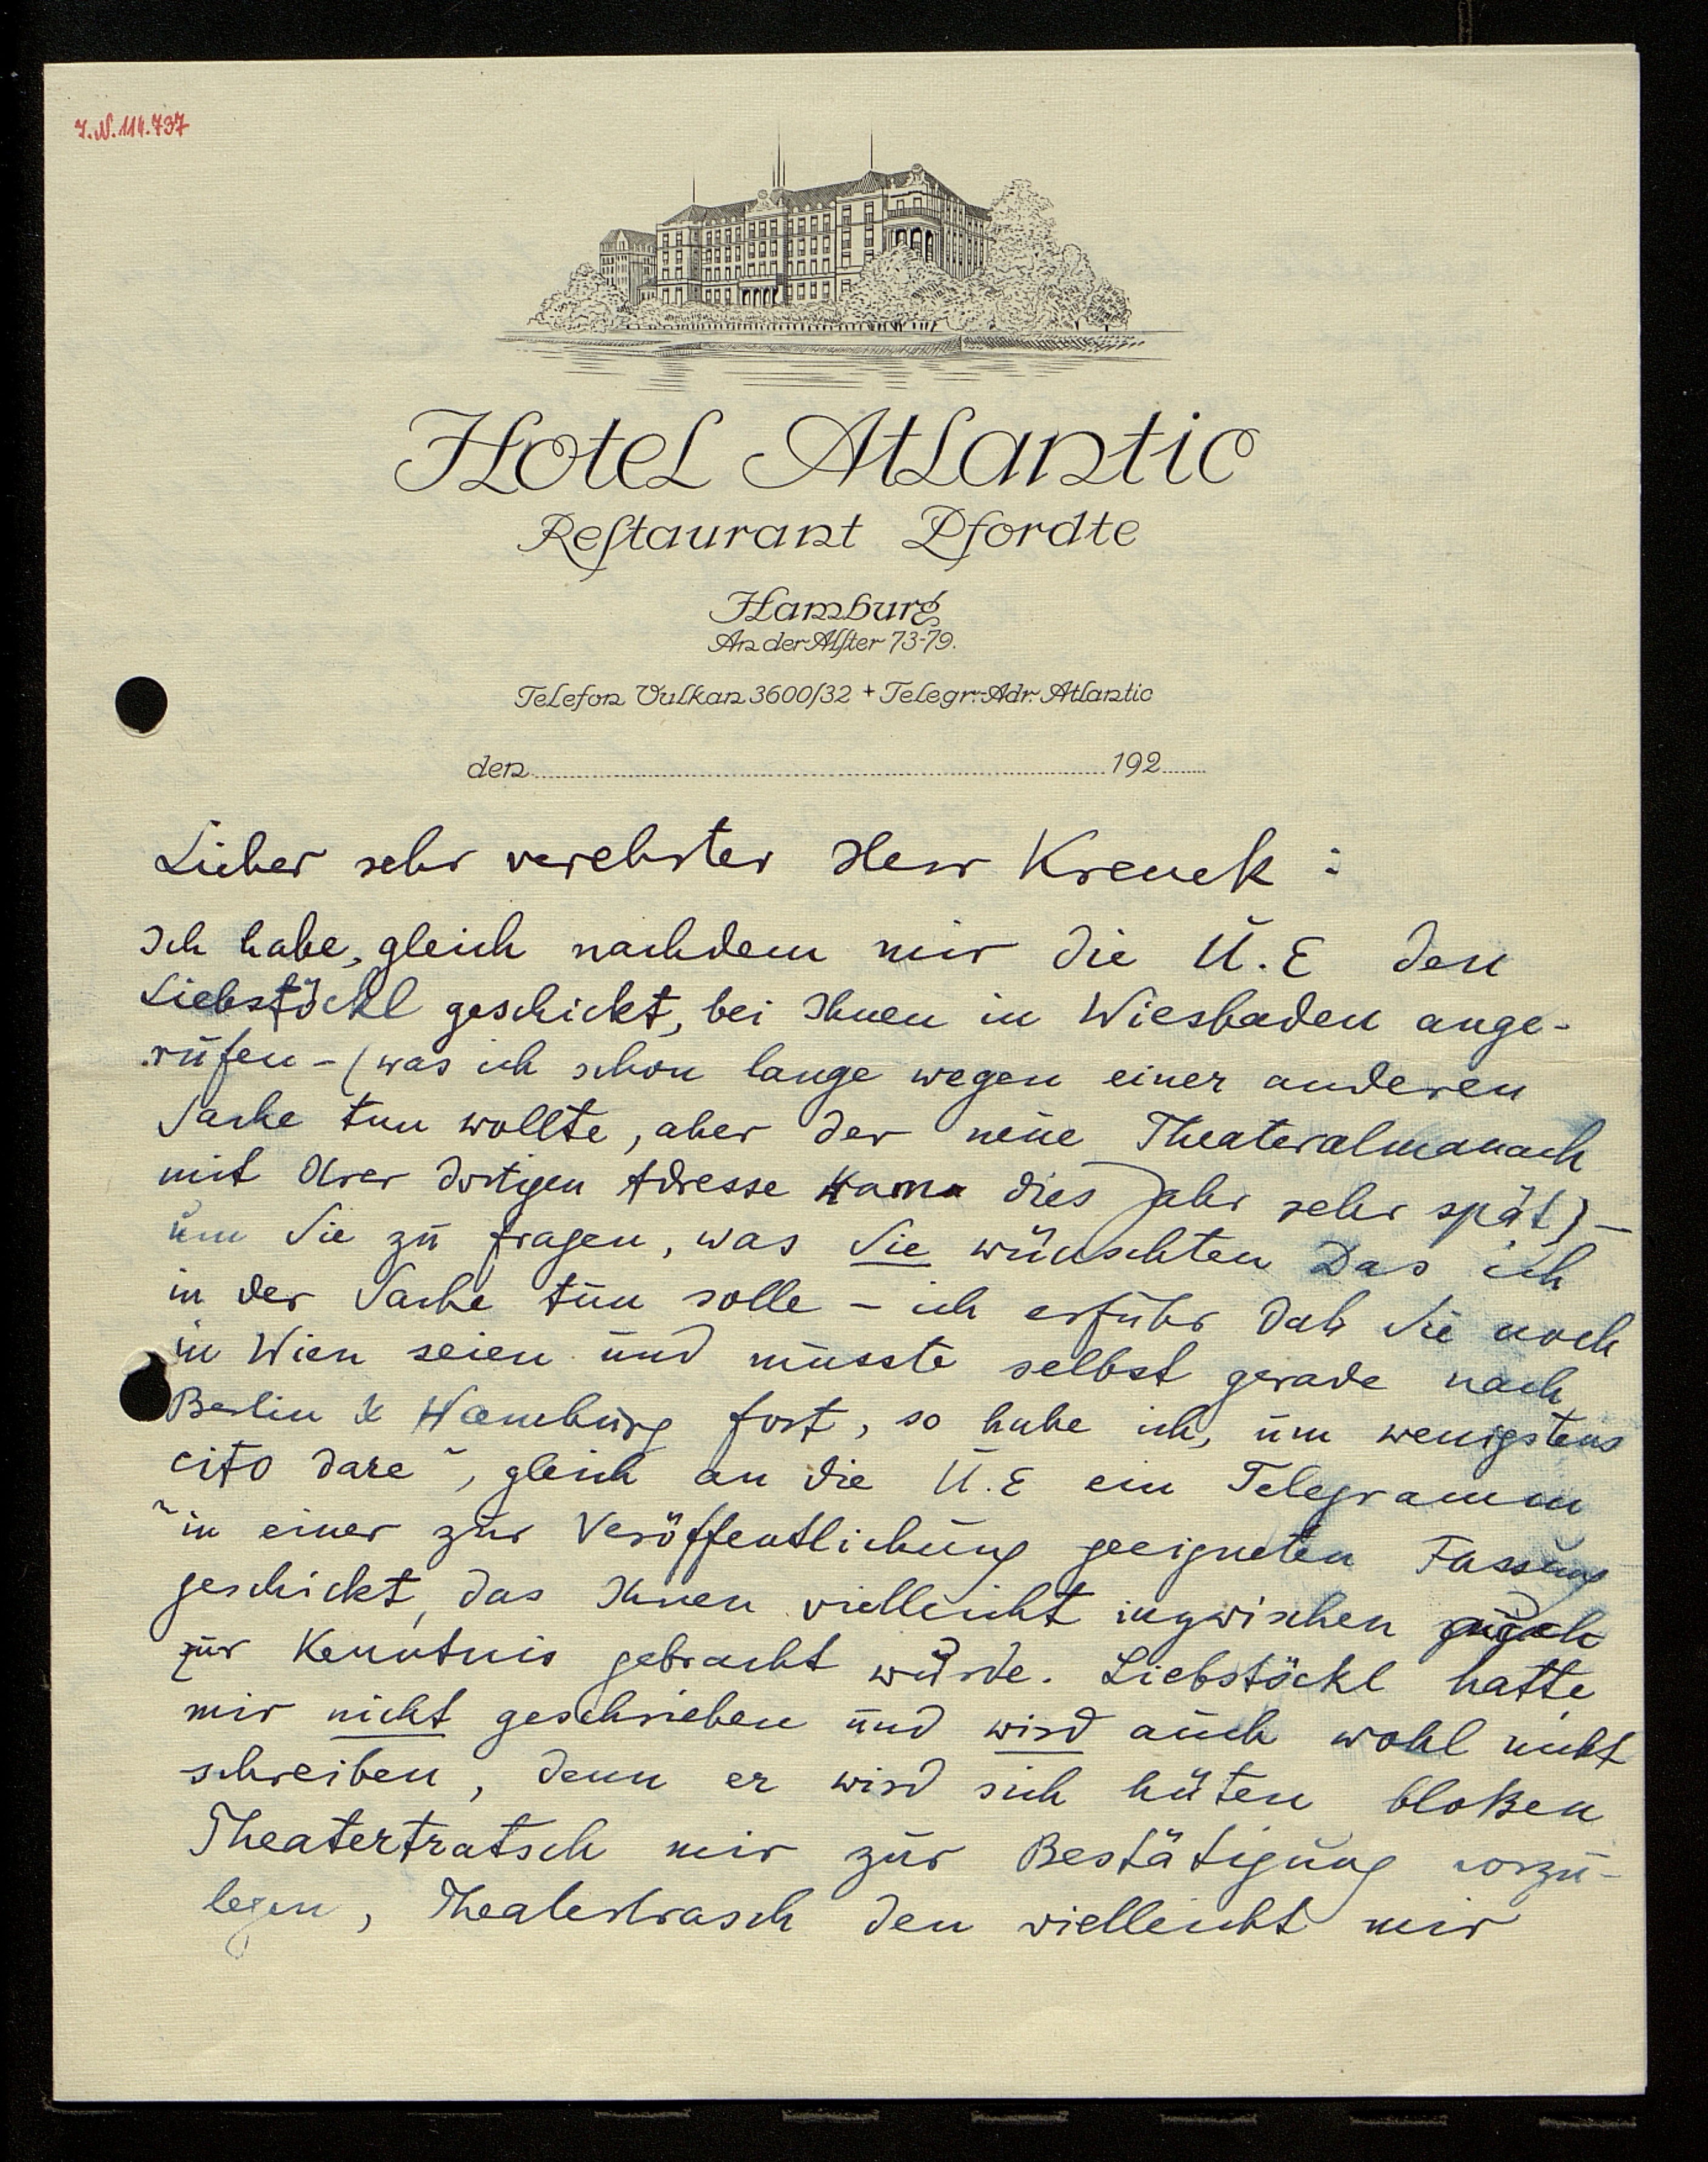 I.N. 114.737
Hotel Atlantic
Restaurant Pfordte
Hamburg
An der Alster 73-79.
Telefon Vulkan 3600/32 + Telegr.-Adr. Atlantic
den 192
Lieber sehr verehrter Herr Krenek :
Ich habe, gleich nachdem mir die U.E den
Liebstöckl geschickt, bei Ihnen in Wiesbaden ange-
rufen - (was ich schon lange wegen einer anderen
Sache tun wollte, aber der neue Theateralmanach
mit Ihrer dortigen Adresse kam dies Jahr sehr spät) -
um Sie zu fragen, was Sie wünschten das ich
in der Sache tun solle - ich erfuhr daß Sie noch
in Wien seien und musste selbst gerade nach
Berlin & Hamburg fort, so habe ich, um wenigstens
cito dare", gleich an die U.E ein Telegramm
"in einer zur Veröffentlichung geeigneten Fassung
geschickt, das Ihnen vielleicht inzwischen auch
zur Kenntnis gebracht wurde. Liebstöckl hatte
mir nicht geschrieben und wird auch wohl nicht
schreiben, denn er wird sich hüten bloßen
Theatertratsch mir zur Bestätigung vorzu-
legen, Theatertrasch den vielleicht mir